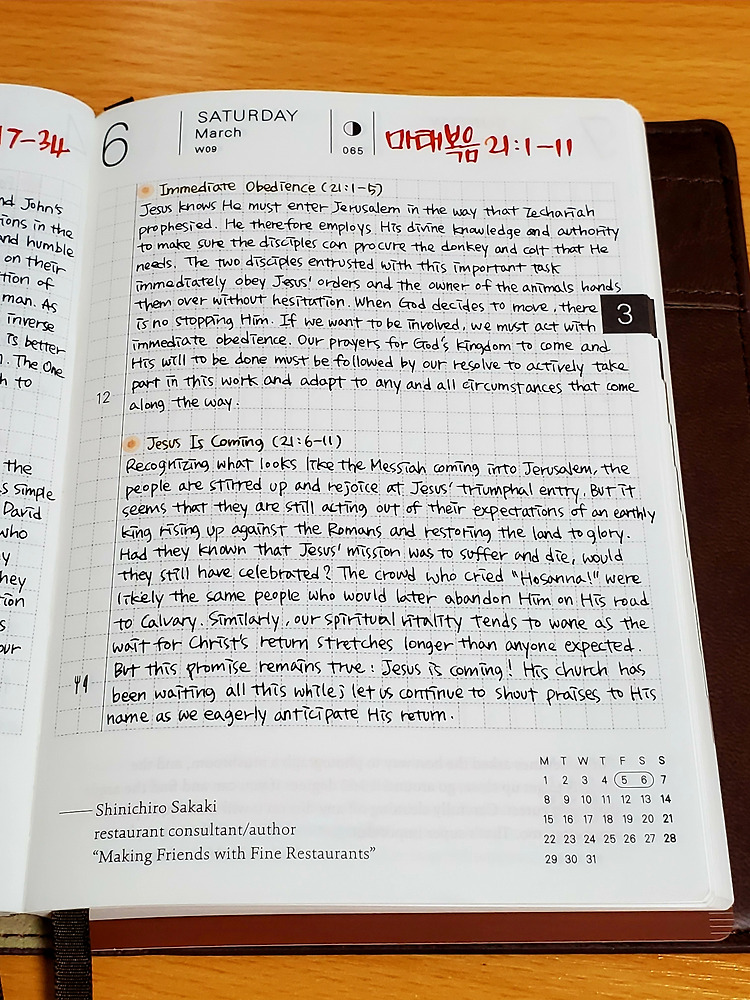 17-34
nd John's
ions in the
and humble
on their
tion of
man. As
inverse
is better
. The One
h to
the
s simple
David
who
y
hey
tion
s
our
6
SATURDAY
March
W09
065
마태복음 21:1-11
Immediate Obedience (21:1-5)
Jesus knows He must enter Jerusalem in the way that Zechariah
prophesied. He therefore employs His divine knowledge and authority
to make sure the disciples can procure the donkey and colt that He
needs. The two disciples entrusted with this important task
immediately obey Jesus' orders and the owner of the animals hands
them over without hesitation. When God decides to move, there
is no stopping Him. If we want to be involved, we must act with
immediate obedience. Our prayers for God's Kingdom to come and
His will to be done must be followed by our resolve to actively take
part in this work and adapt to any and all circumstances that come
along the way.
3
12
Jesus Is Coming (21:6-11)
Recognizing what looks like the Messiah coming into Jerusalem, the
people are stirred up and rejoice at Jesus' triumphal entry. But it
seems that they are still acting out of their expectations of an earthly
king rising up against the Romans and restoring the land to glory.
Had they known that Jesus' mission was to suffer and die, would
they still have celebrated? The crowd who cried "Hosanna!" were
likely the same people who would later abandon Him on His road
to Calvary. Similarly, our spiritual vitality tends to wane as the
wait for Christ's return stretches longer than anyone expected.
But this promise remains true: Jesus is coming! His church has
been waiting all this while; let us continue to shout praises to His
name as we eagerly anticipate His return.
M T W T F S S
1 2 3 4 5 6 7
8 9 10 11 12 13 14
15 16 17 18 19 20 21
22 23 24 25 26 27 28
29 30 31
Shinichiro Sakaki
restaurant consultant/author
"Making Friends with Fine Restaurants"